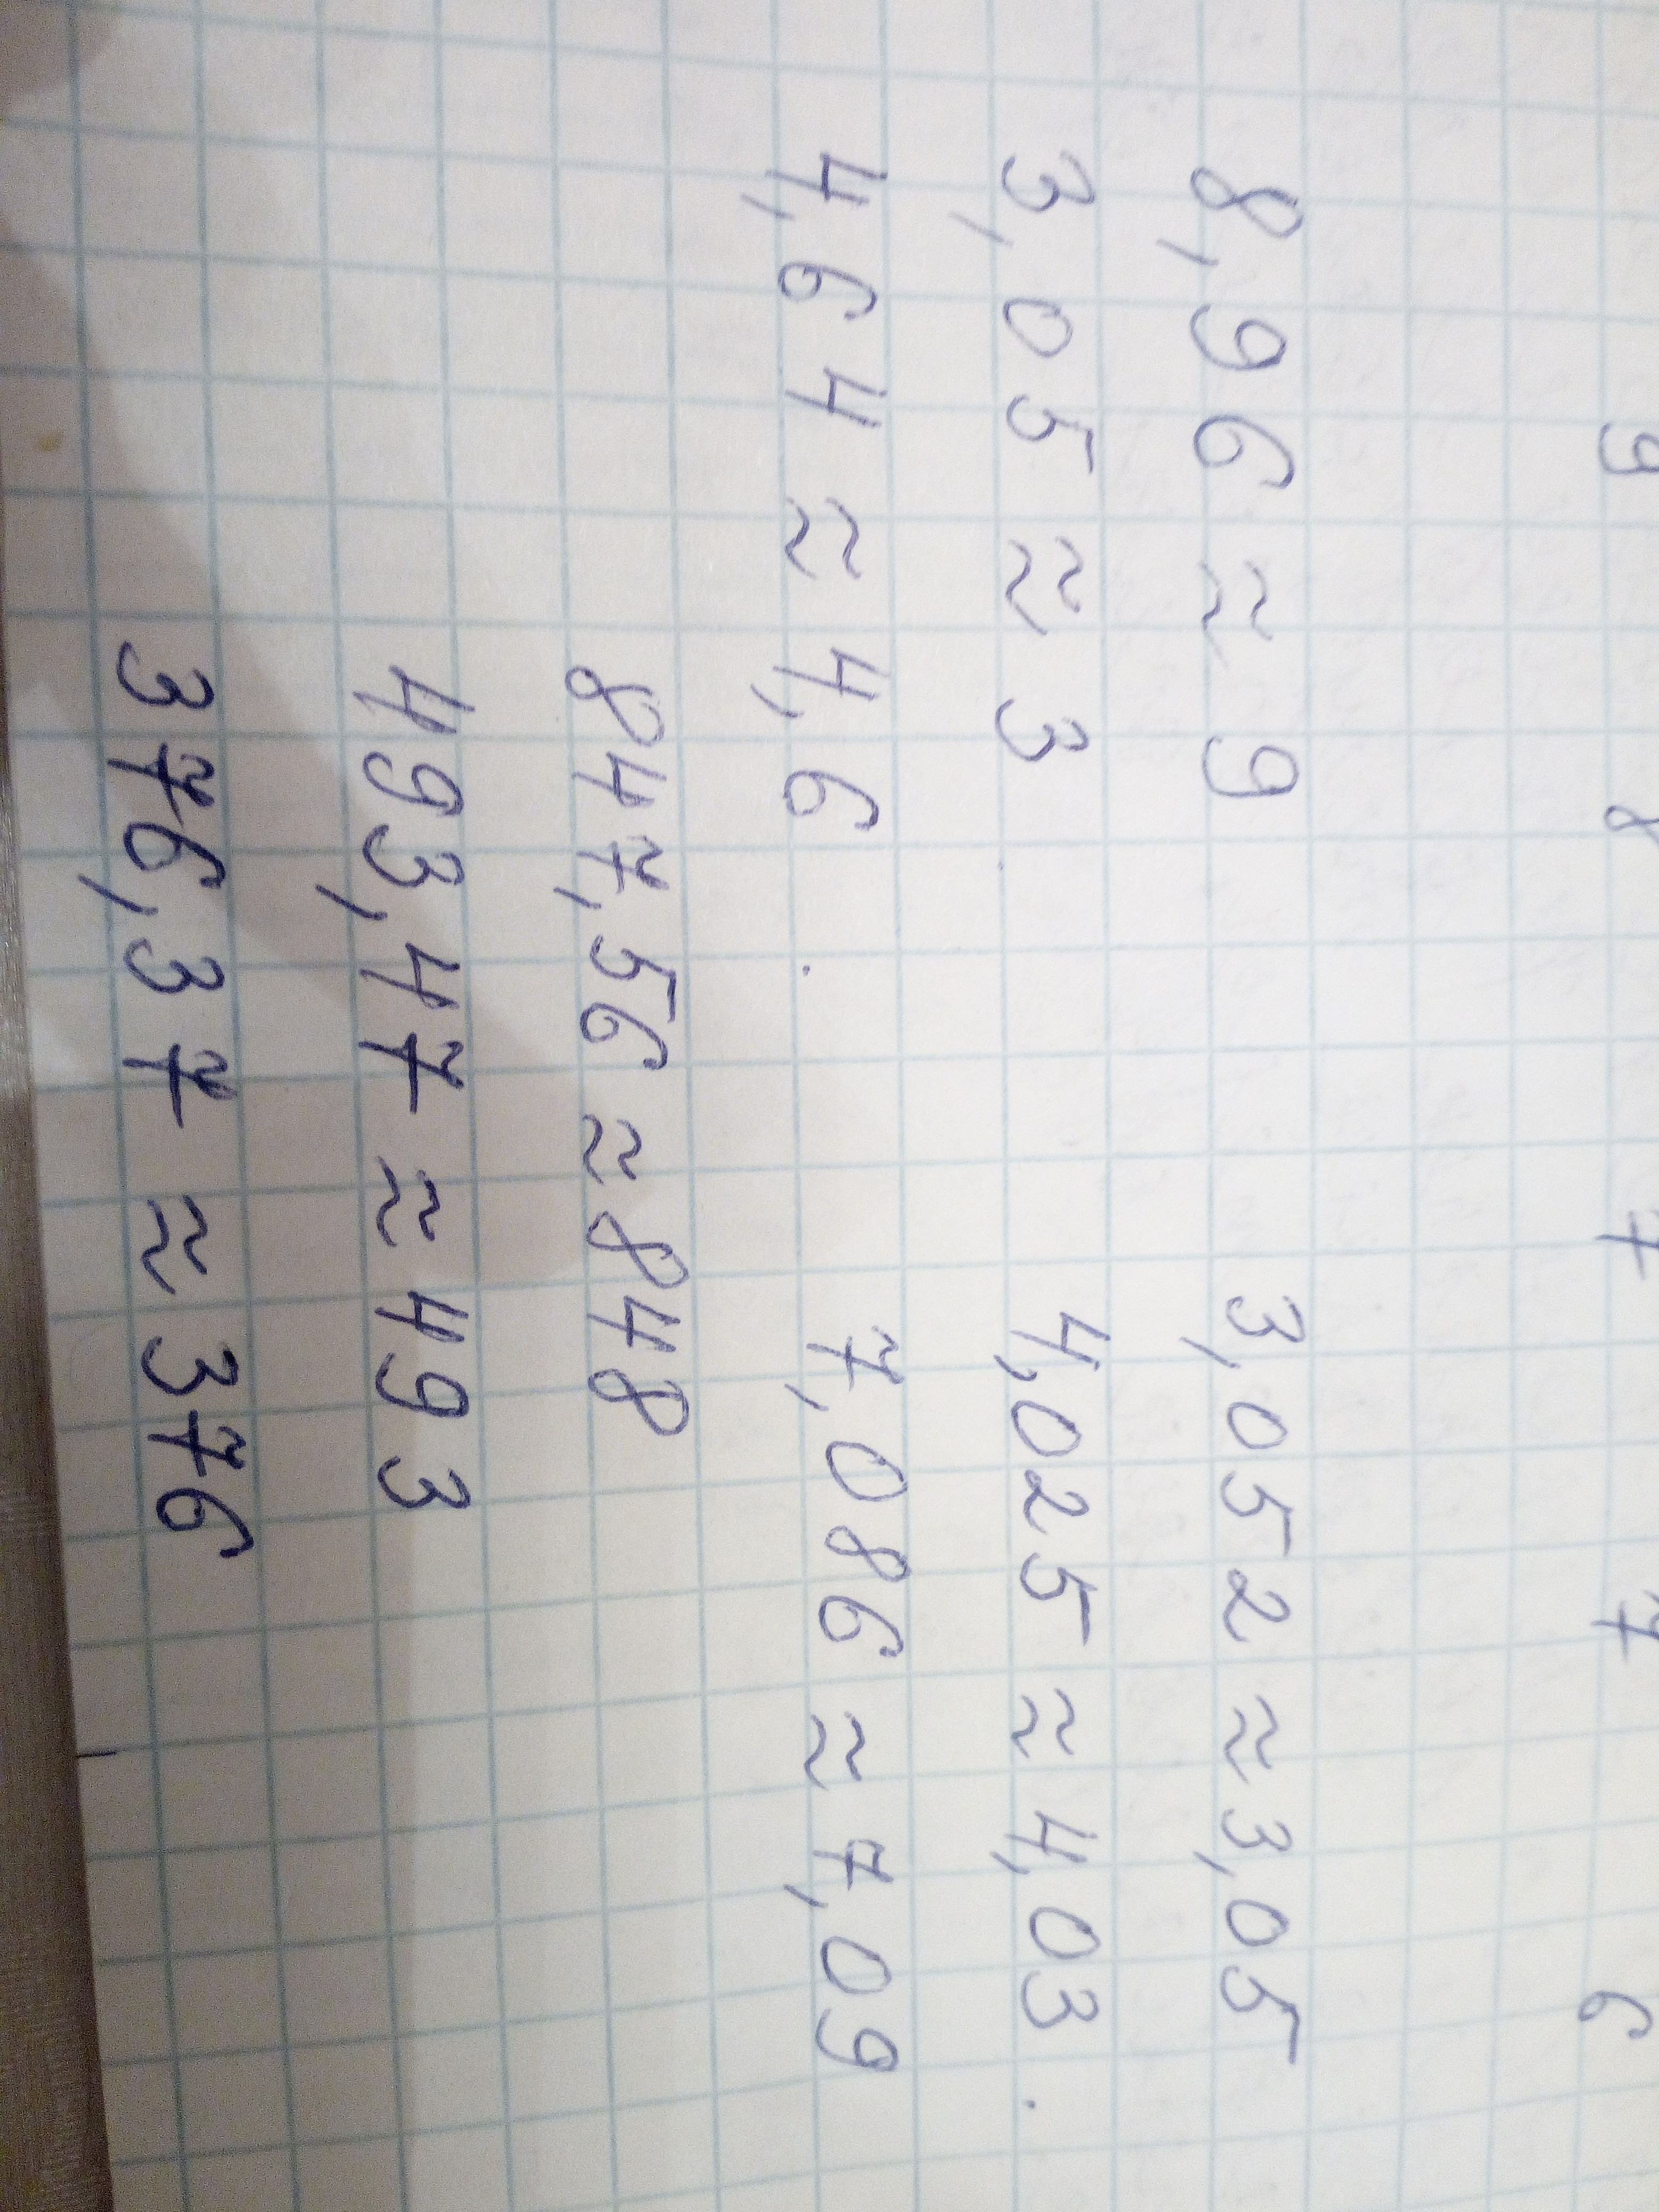 8,96 ≈ 9 3,052 ≈ 3,05
3,05 ≈ 3 4,025 ≈ 4,03
4,64 ≈ 4,6 7,086 ≈ 7,09
847,56 ≈ 848
493,47 ≈ 493
376,37 ≈ 376